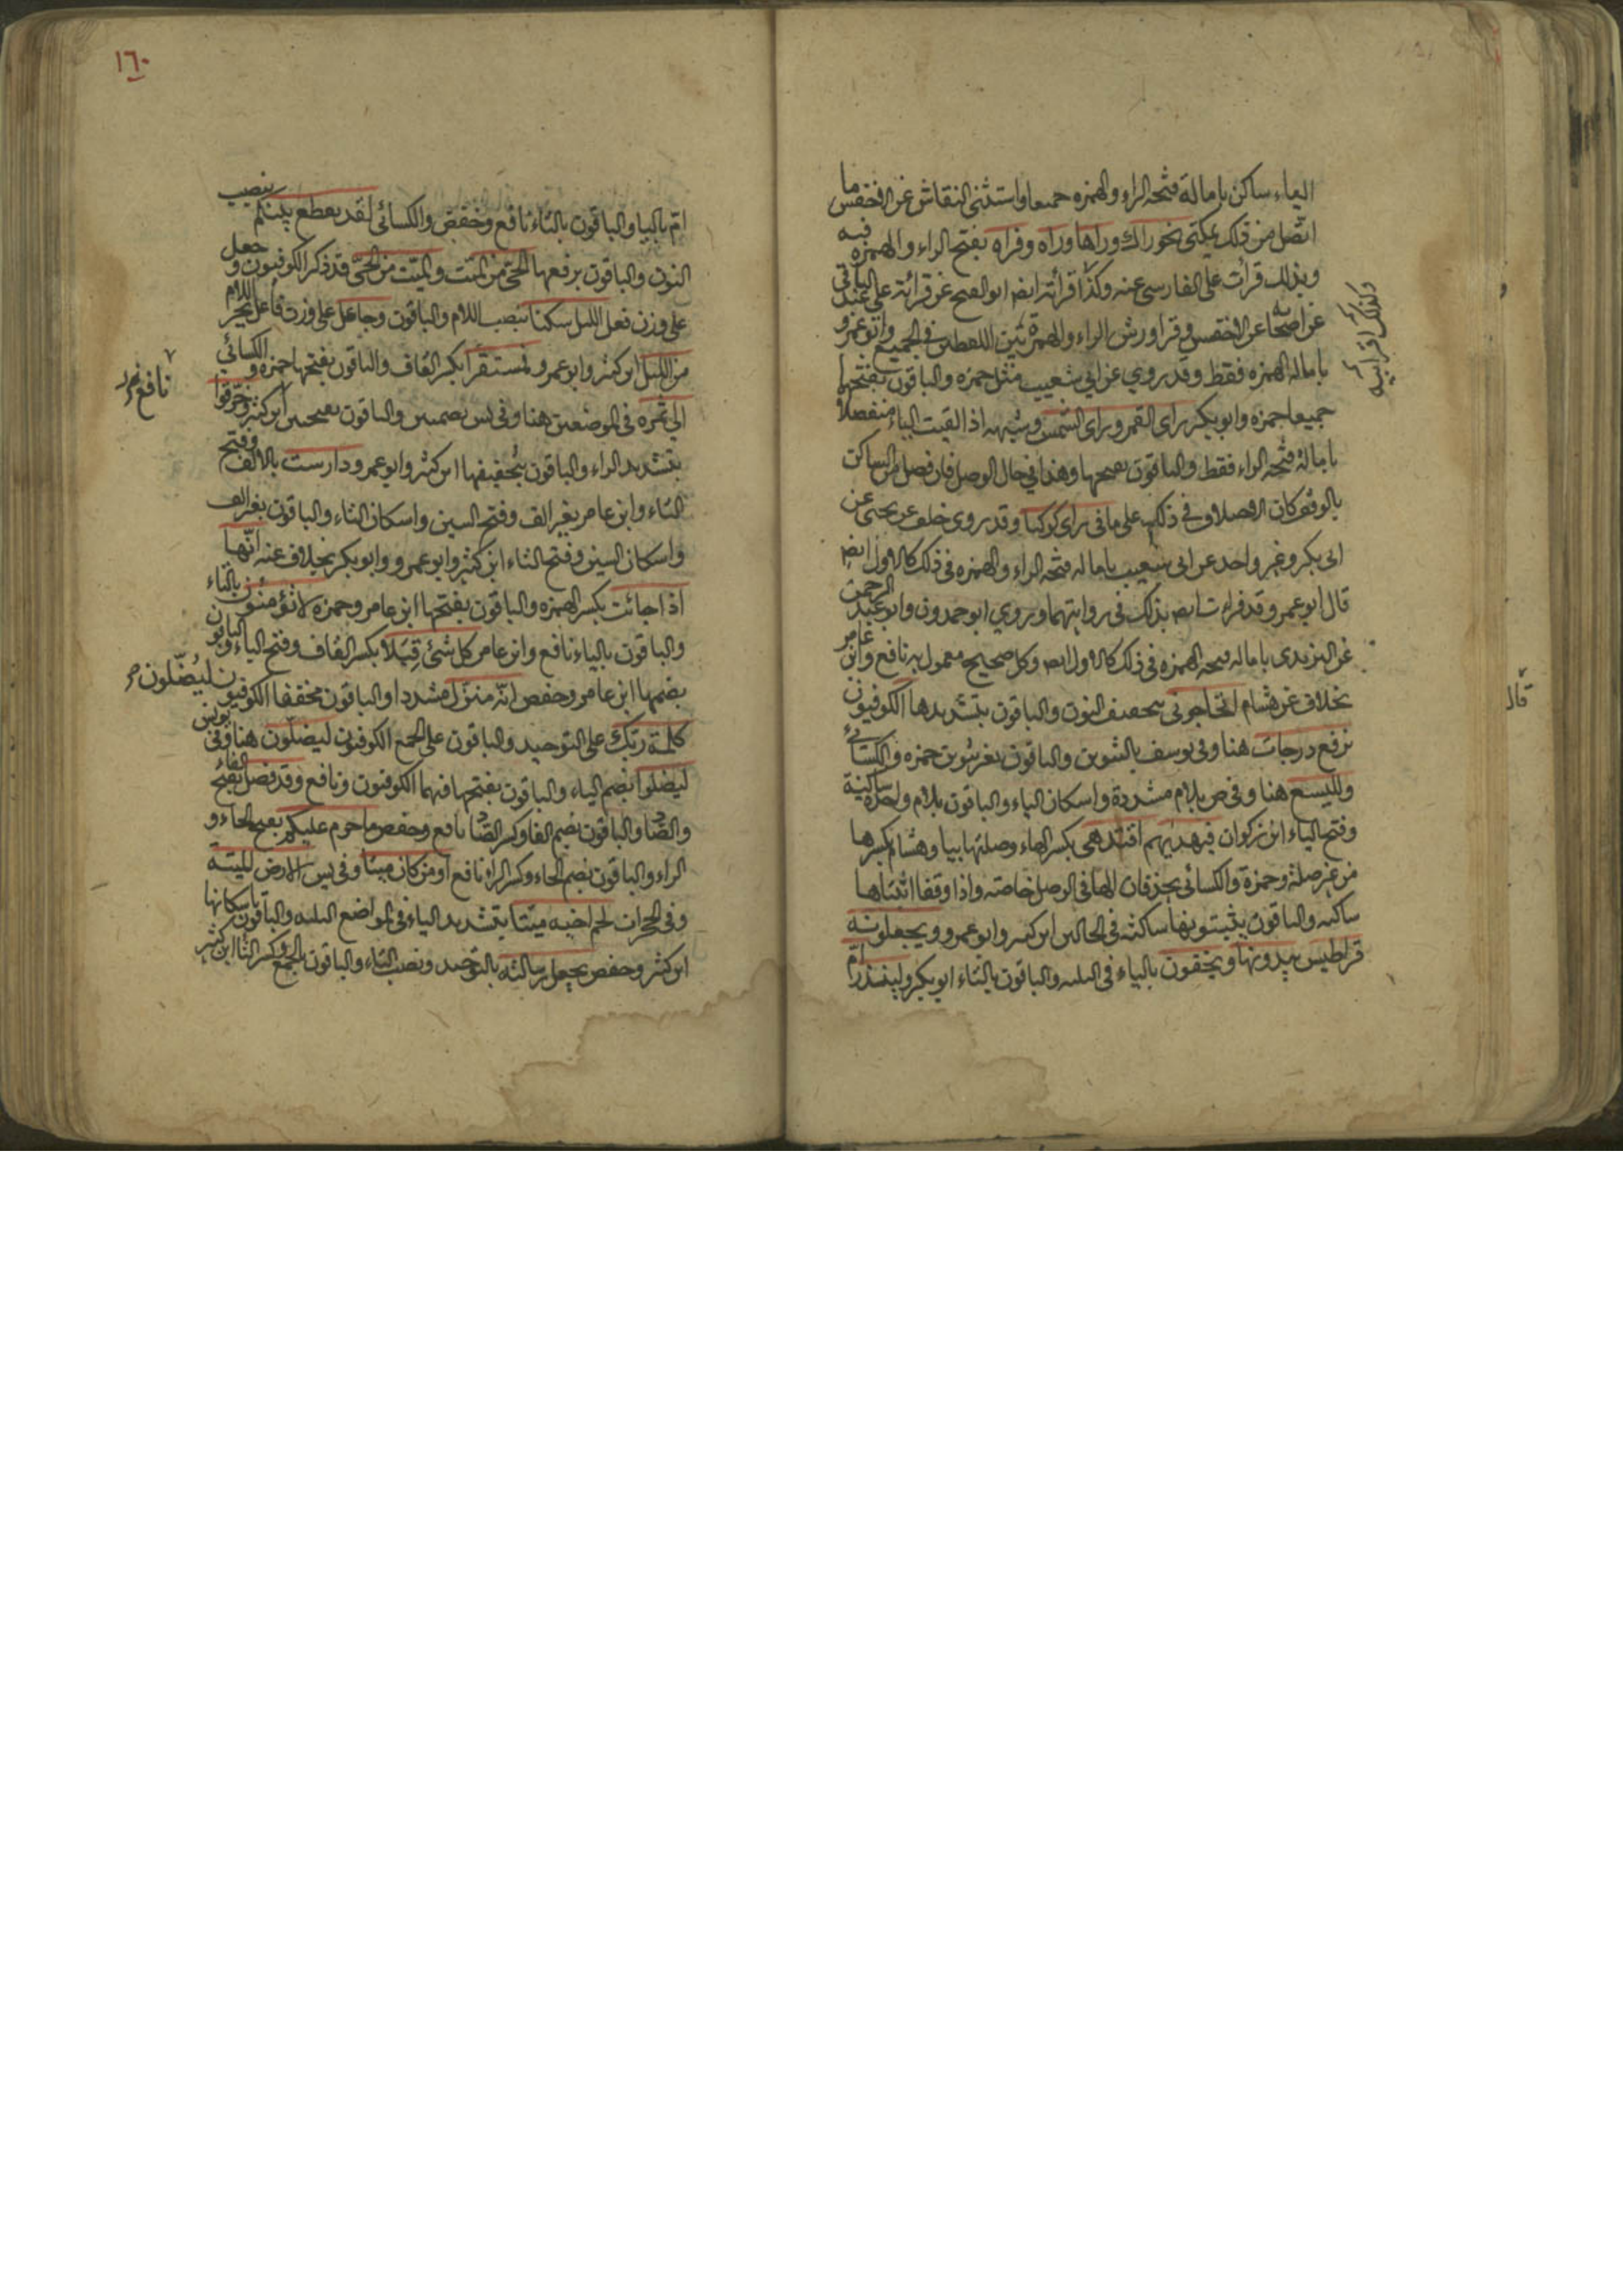 الياء ساكن بامالة فتحة الراء والهمزه جميعا واستثنى النقاش عن الاخفش ما
اتصل من ذلك بمكنى نحو راك وراها وراه وفراه بفتح الراء والهمزه فيه
وبذلك قرأت على الفارسي عنه وكذا قرأته ايضا ابو الفتح عن قرائته على عبد الباقي
عن اصحابه عن الاخفش وقرا ورش الراء والهمزة بين اللفظين في الجميع وابو عمرو
بامالة الهمزه فقط وقد روي عن ابي شعيب مثل حمزه والباقون بفتحها
جميعا حمزه وابو بكر راى القمر وراى الشمس وشبهه اذا لقيت الياء منفصلا
بامالة فتحة الراء فقط والباقون بفتحها وهذا في حال الوصل فان فصل من الساكن
بالوقف كان الاختلاف في ذلك على ما في راى كوكبا وقد روى خلف عن يحيى عن
ابى بكر وغير واحد عن ابى شعيب بامالة فتحة الراء والهمزه في ذلك كالاول ايضا
قال ابو عمرو وقد قرات ايضا بذلك في روايتهما وروي ابو حمدون وابو عبد الرحمن
عن اليزيدى بامالة فتحة الهمزه في ذلك كالاول ايضا وكل صحيح معمول به نافع وابن عامر
بخلاف عن هشام اتحاجونى بتخفيف النون والباقون بتشديدها الكوفيون
نرفع درجات هنا وفي يوسف بالتنوين والباقون بغير تنوين حمزه والكسائي
والليسع هنا وفي ص بلام مشددة واسكان الياء والباقون بلام واحدة ساكنة
وفتح الياء ابن ذكوان فبهديهم اقتدهى بكسر الهاء وصلتها بيا وهشام بكسرها
من غير صلة وحمزة والكسائى يحذفان الها في الوصل خاصة واذا وقفا اثبتاها
ساكنه والباقون يثبتونها ساكنة في الحالين ابن كثير وابو عمرو ويجعلونه
قراطيس يبدونها ويخفون بالياء في الثلثه والباقون بالتاء ابو بكر ولينذر ام
وكذلك اقرانيه
قال
١٦٠
ام بالياء والباقون بالتاء نافع وحفص والكسائى لقد تقطع بينكم بنصب
النون والباقون برفعها الحي من الميت والميت من الحي قد ذكر الكوفيون وجعل
على وزن فعل الليل سكنا بنصب اللام والباقون وجاعل على وزن فاعل بجر اللام
من الليل ابن كثير وابو عمرو فمستقر بكسر القاف والباقون بفتحها حمزه والكسائي
الى ثمره في الموضعين هنا وفي يس بضمتين والباقون بفتحتين نافع وخرقوا
بتشديد الراء والباقون بتخفيفها ابن كثير وابو عمرو دارست بالالف وفتح
التاء وابن عامر بغير الف وفتح السين واسكان التاء والباقون بغير الف
واسكان السين وفتح التاء ابن كثير وابو عمرو وابو بكر بخلاف عنه انها
اذا جائت بكسر الهمزه والباقون بفتحها ابن عامر وحمزه لا تؤمنون بالتاء
والباقون بالياء نافع وابن عامر كل شئ قبلا بكسر القاف وفتح الباء والباقون
بضمها ابن عامر وحفص انه منزل مشددا والباقون مخففا الكوفيون
كلمة ربك على التوحيد والباقون على الجمع الكوفيون ليضلون هنا وفي يونس
ليضلوا بضم الياء والباقون بفتحها فيهما الكوفيون ونافع وقد فصل بفتح الفاء
والصاد والباقون بضم الفا وكسر الصاد نافع وحفص ما حرم عليكم بفتح الحاء و
الراء والباقون بضم الحاء وكسر الراء نافع اومن كان ميتا وفي يس الارض الميتة
وفي الحجرات لحم اخيه ميتا بتشديد الياء في المواضع الثلثه والباقون باسكانها
ابن كثير وحفص يجعل رسالته بالتوحيد ونصب التاء والباقون بالجمع وكسر التا ابن كثير
نافع
ليضلون